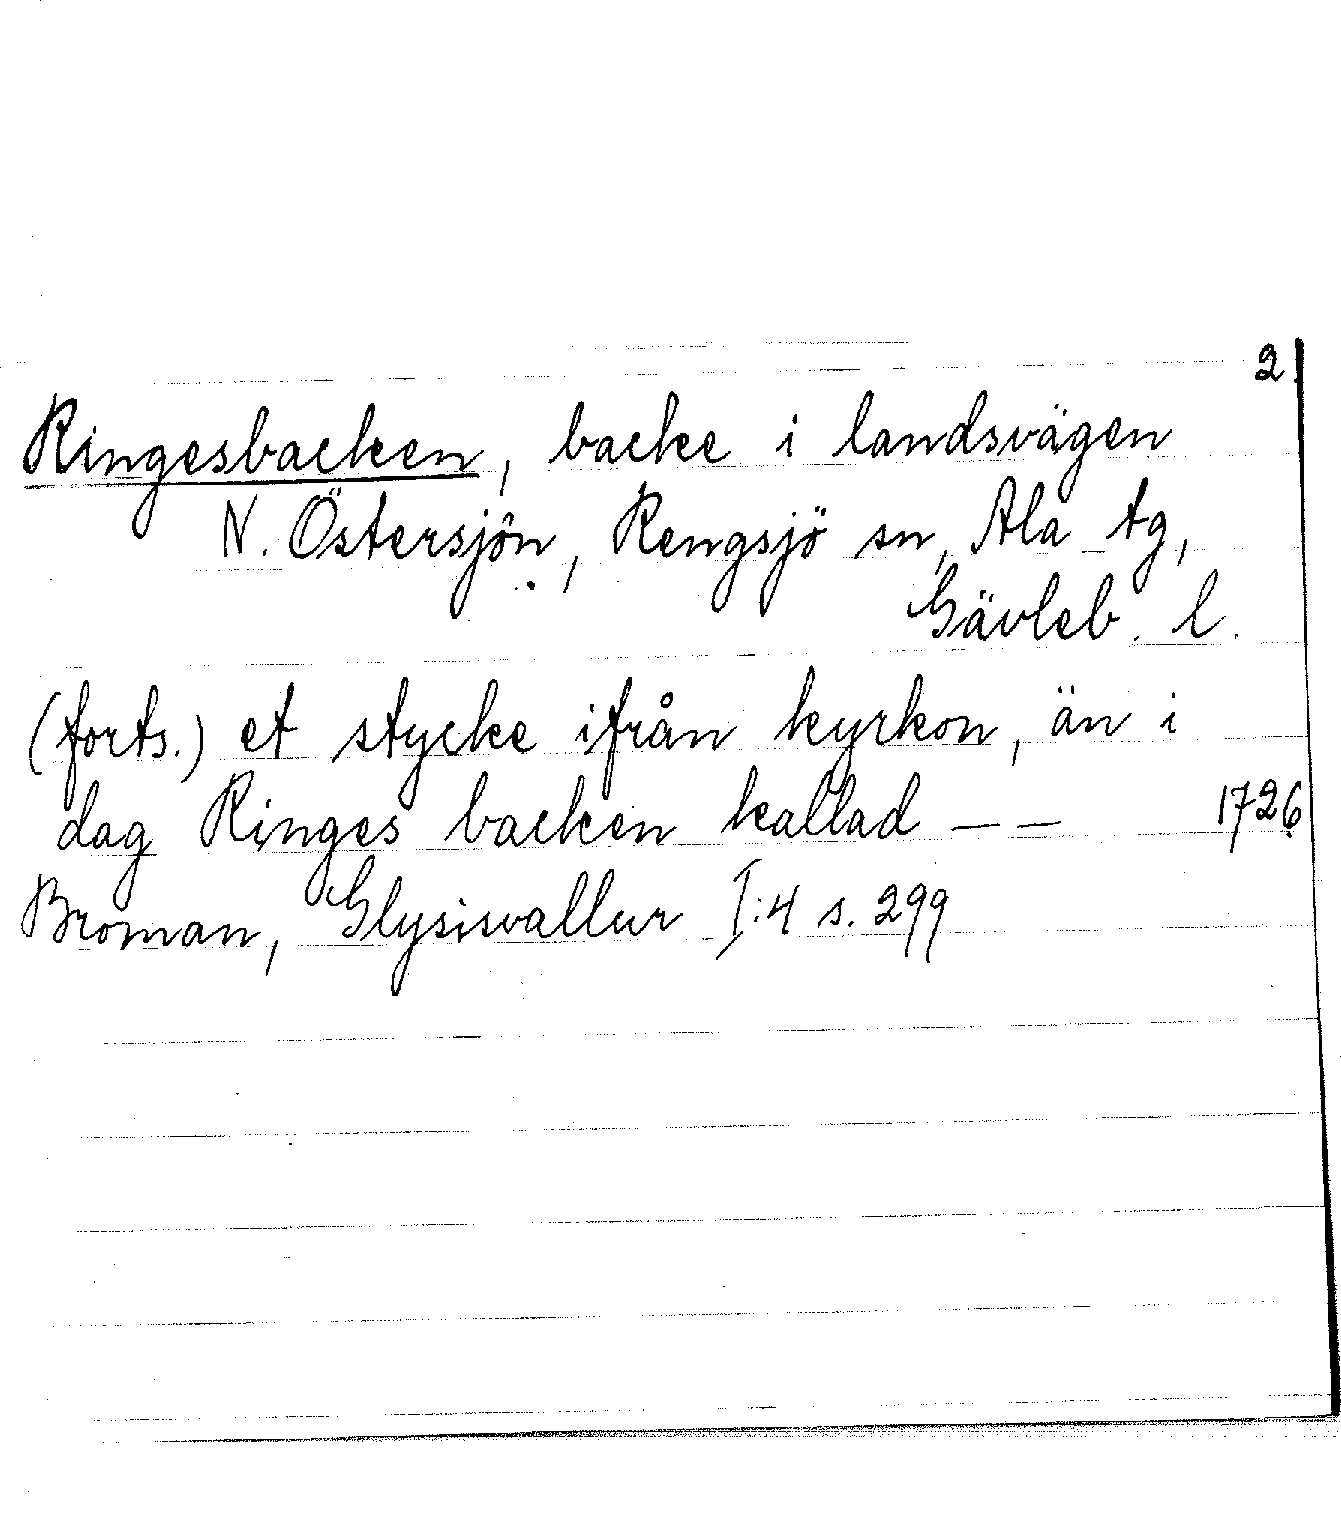 2.
Ringesbacken, backe i landsvägen
N. Östersjön, Rengsjö sn, Ala tg,
Gävleb. l.
(forts.) et stycke ifrån kyrkon, än i
dag Ringes backen kallad — — 1726
Broman, Glysisvallur I:4 s. 299